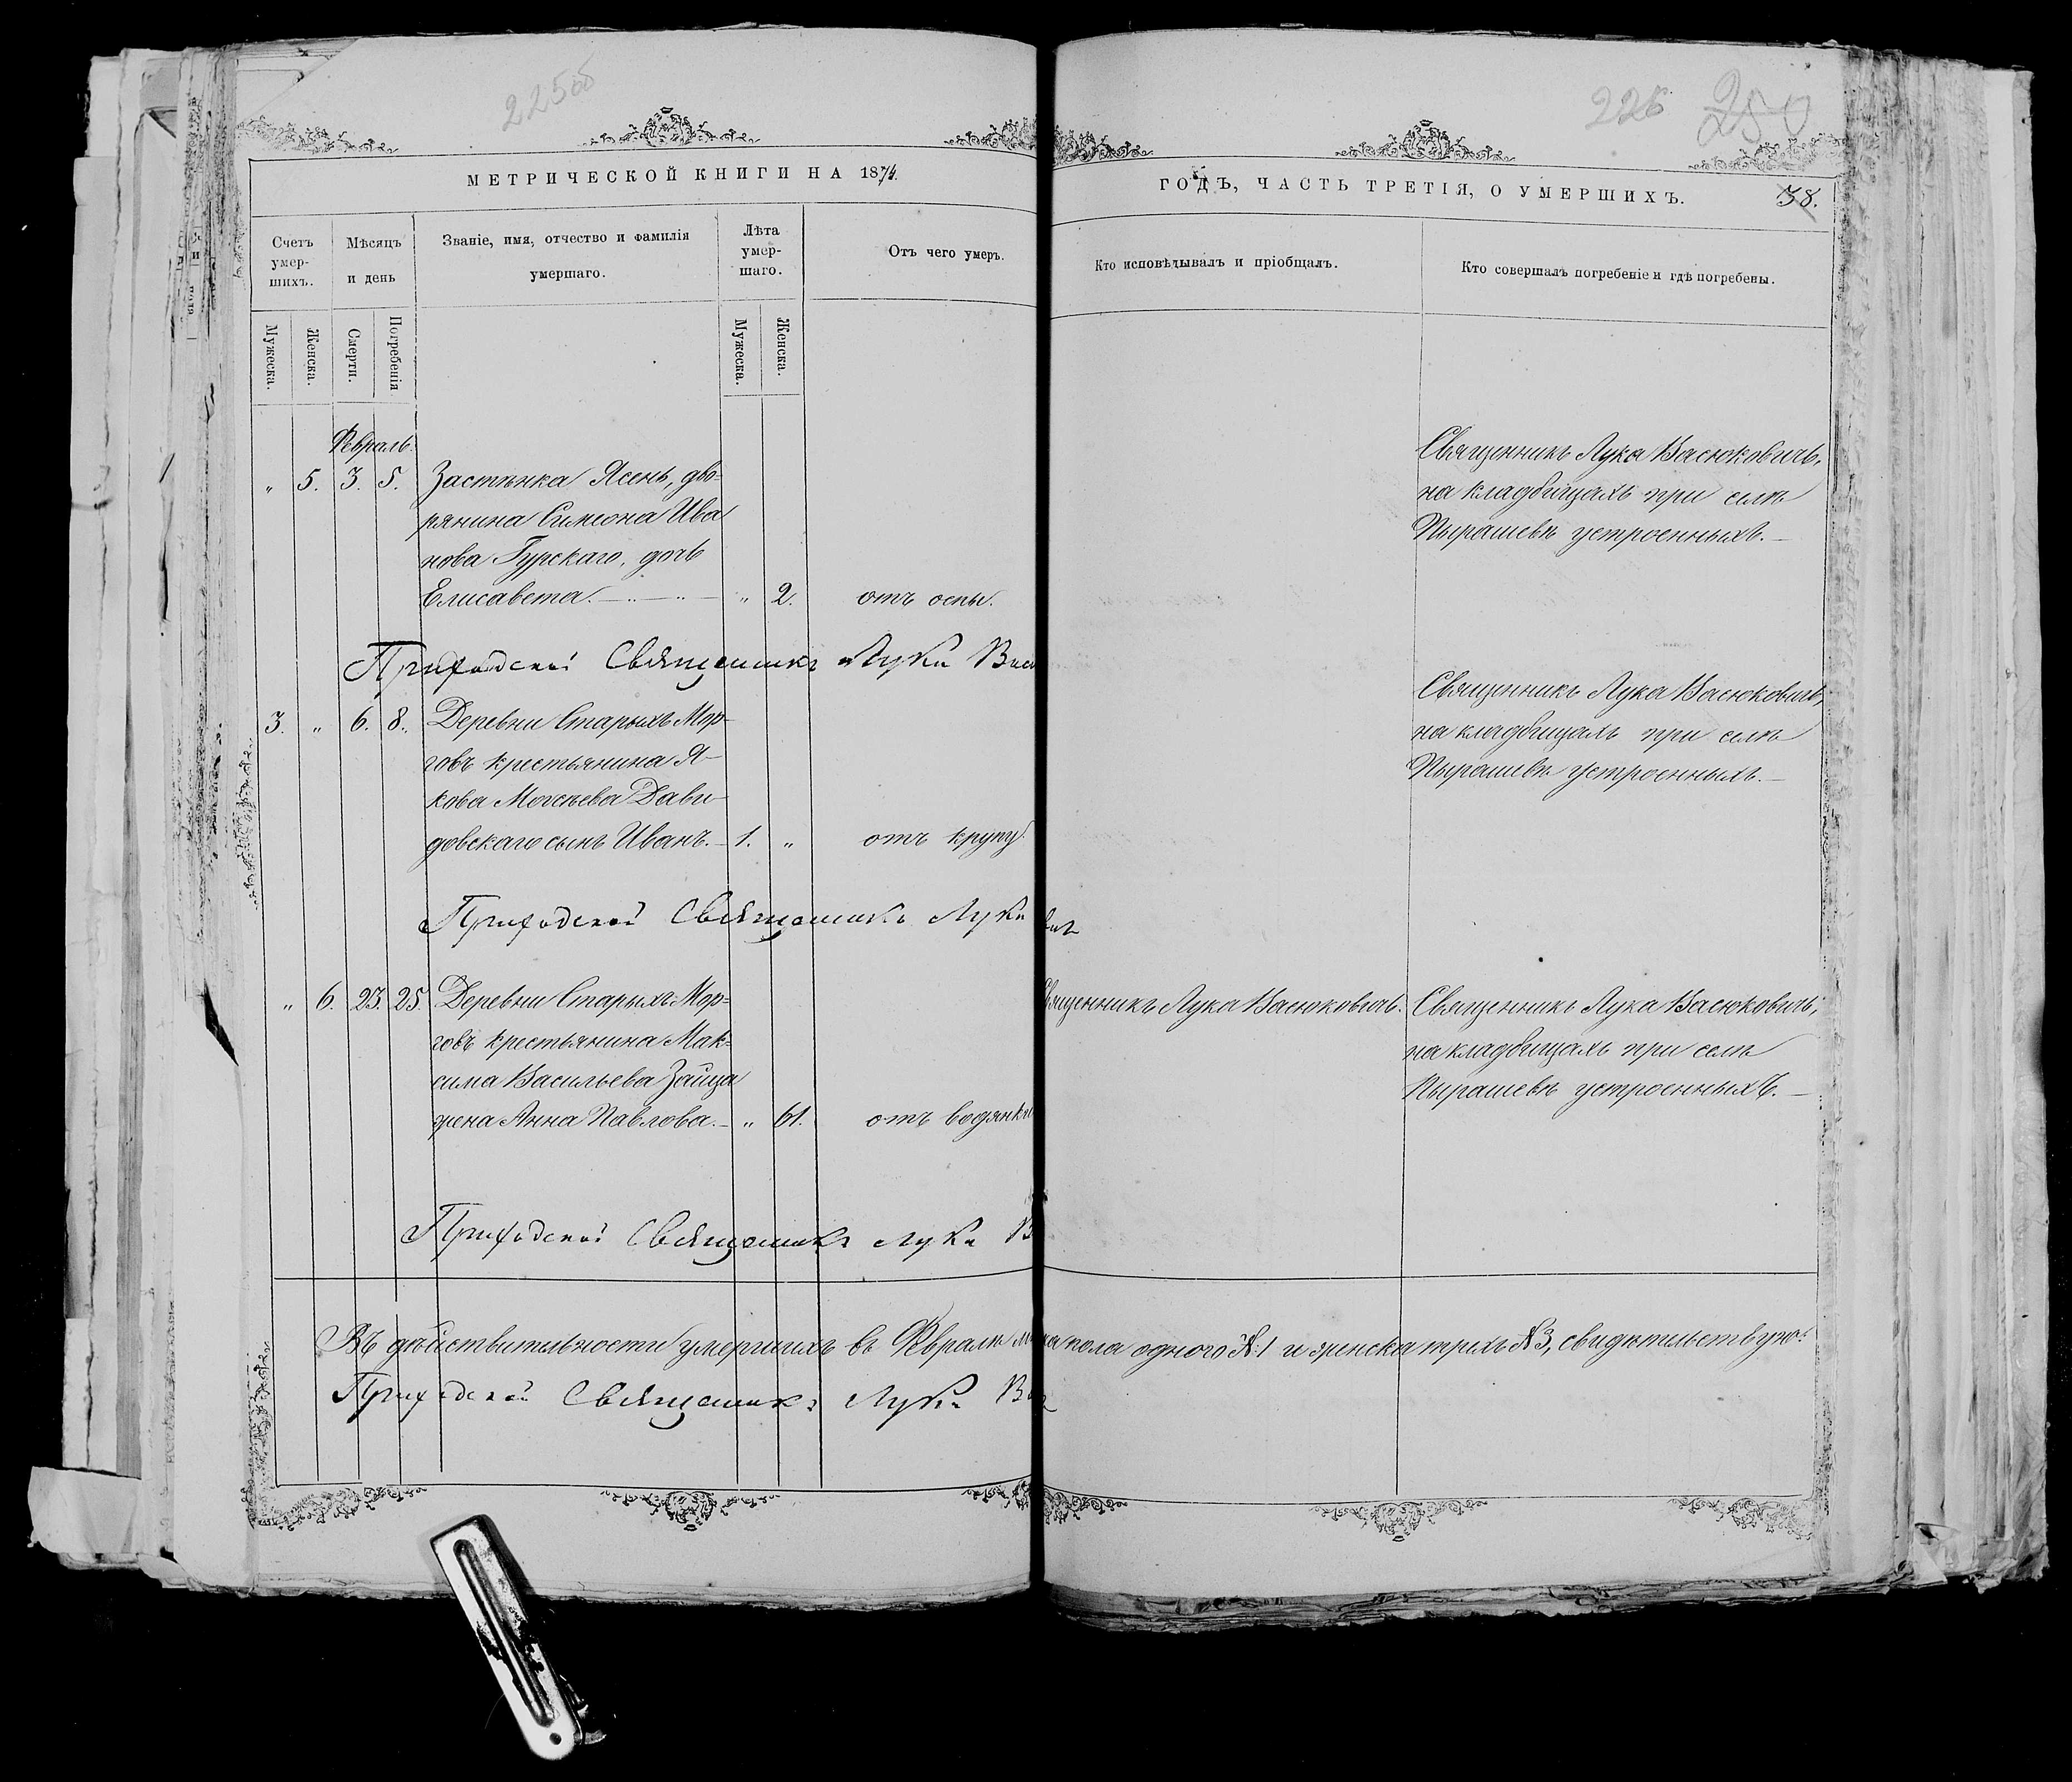 225об
226 250
МЕТРИЧЕСКОЙ КНИГИ НА 1874.
ГОДЪ, ЧАСТЬ ТРЕТІЯ, О УМЕРШИХЪ.
38.
Счетъ умер-
шихъ.
Мѣсяцъ
и день
Званіе, имя, отчество и фамилія
умершаго.
Лѣта
умер-
шаго.
Отъ чего умеръ.
Кто исповѣдывалъ и пріобщалъ.
Кто совершалъ погребеніе и гдѣ погребены.
Мужеска.
Женска.
Смерти.
Погребенія
Мужеска.
Женска.
Февраль.
„ 5. 3. 5. Застѣнка Ясень, дво-
рянина Симеона Ива
нова Гурскаго, дочь
Елисавета. „ 2. отъ оспы.
Священникъ Лука Васюковичъ,
на кладбищахъ при селѣ
Пырашевѣ устроенныхъ.
Приходской Священникъ Лука Вас
3. „ 6. 8. Деревни Старыхъ Мор-
говъ крестьянина Я-
кова Моѵсѣева Дави-
довскаго сынъ Иванъ. 1. „ отъ крупу
Священникъ Лука Васюковичъ,
на кладбищахъ при селѣ
Пырашевѣ устроенныхъ.
Приходской Священникъ Лука
„ 6. 23. 25. Деревни Старыхъ Мор=
говъ крестьянина Мак=
сима Васильева Зайца
жена Анна Павлова. „ 61. отъ водянки
Священникъ Лука Васюковичъ.
Священникъ Лука Васюковичъ,
на кладбищахъ при селѣ
Пырашевѣ устроенныхъ.
Приходской Священникъ Лука В
Въ дѣйствительности умершихъ въ Февралѣ пола одного № 1 и женска трехъ № 3, свидѣтельствую:
Приходской Священникъ Лука Ва